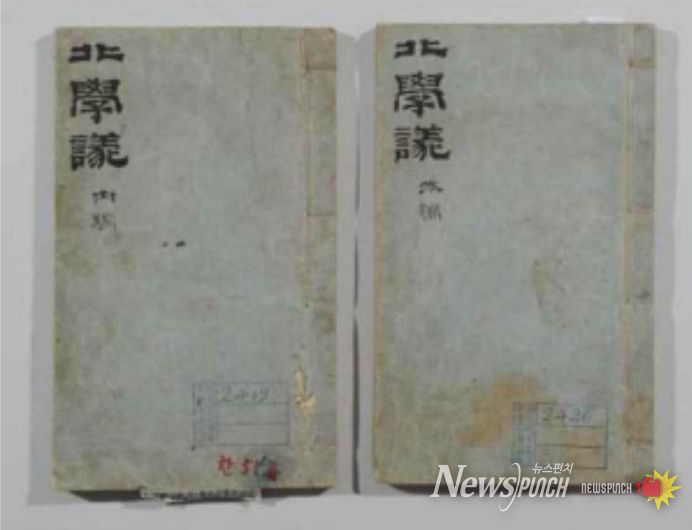 北學議
內編
北學議
外編
2419
2420
한51
뉴스펀치
NEWSPUNCH
NEWSPUNCH